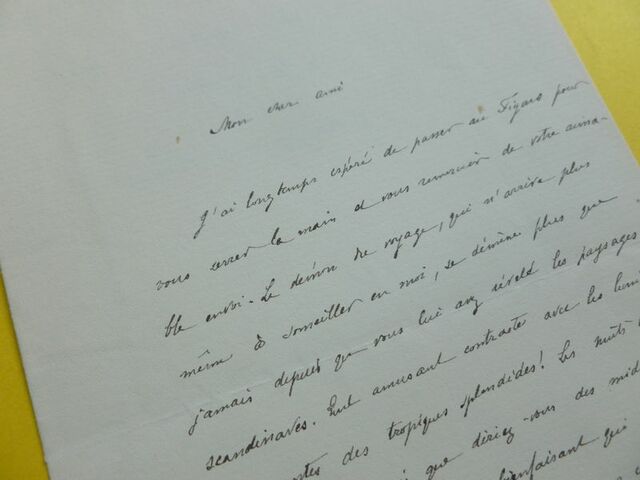 Mon cher ami
J'ai longtemps espéré de passer au Figaro pour
vous serrer la main et vous remercier de votre aima-
ble envoi. Le démon du voyage, qui n'arrive plus
même à sommeiller en moi, se démène plus que
jamais depuis que vous lui avez révélé les paysages
scandinaves. Quel amusant contraste avec les
des tropiques splendides! Les nuits
que décriez-vous des
bienfaisant qui